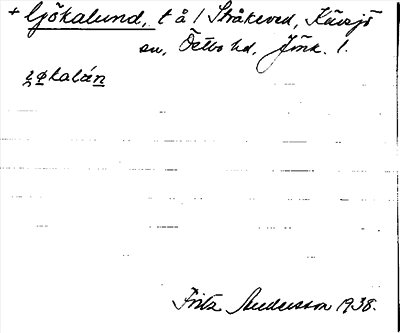 + Ljökalund, t å / Stråkeved, Kävsjö
sn, Östbo hd, Jönk. l.
Fritz Andersson 1938.